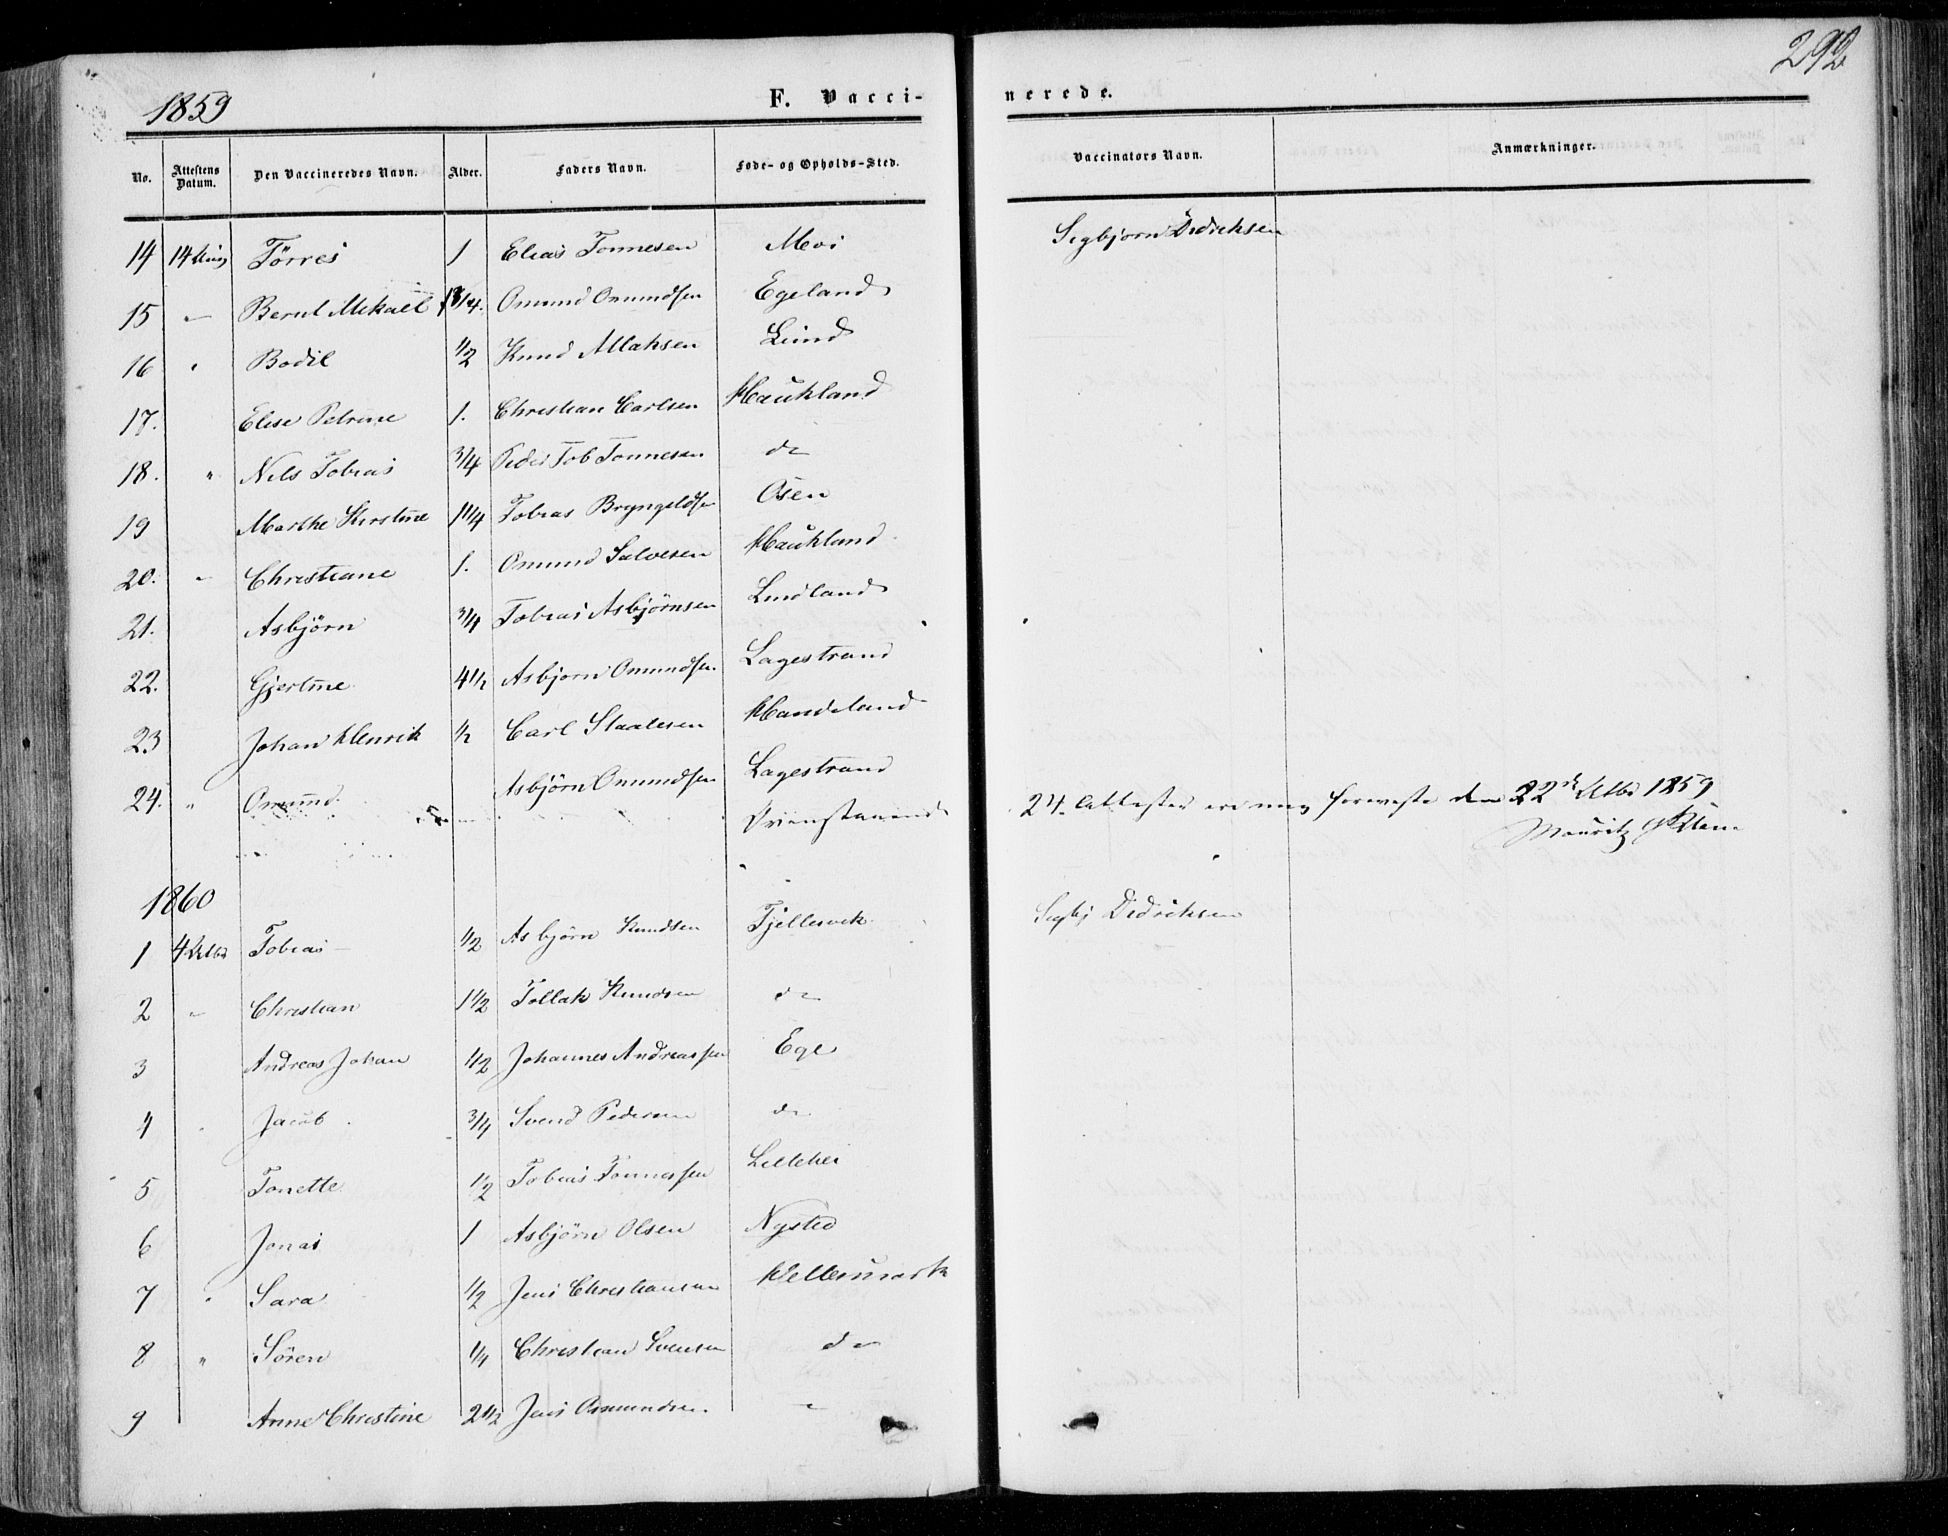 292
1859
F. Vacci-
nerede.
No. Attestens Datum. Den Vaccineredes Navn. Alder. Faders Navn. Føde- og Opholds-Sted. Vaccinators Navn. Anmærkninger.
14 14 Tørres 1 Elias Tonnesen Moi Sigbjorn Didriksen
15 Bernt Mikael Omund Omundsen Egeland
16 " Bodil 1/2 Knud Atlaksen Lund
17. Elise Petrine 1. Christian Carlsen Haukland
18. " Nils Tobias 3/4 Peder Tob Tonnesen do
19 Marthe Kirstine 1 1/4 Tobias Bryngeldsen Osen
20. " Christiane 1. Omund Salvesen Haukland
21. Asbjörn 3/4 Tobias Asbjörnsen Lindland
22. Gjertine 4 1/2 Asbjorn Omundsen Lagestrand
23 Johan Henrik 1/2 Carl Staalesen Haudeland
24. " Omund Asbjörn Omundsen Lagestrand
24 Attester ere mig foreviste den 22de 1859
Mauritz
1860
1 4 Tobias 1/2 Asbjörn Knudsen Fjellesvik Sigbj Didriksen
2 " Christian 1 1/2 Tollak Knudsen do
3 Andreas Johan 1/2 Johannes Andreassen Ege
4 Jacob 3/4 Svend Pedersen do
5 Tonette 1/2 Tobias Tonnessen Lillehei
6 Jonas 1 Asbjörn Olsen Nysted
7 " Sara 1/2 Jens Christiansen Hellesmark
8 " Sören 1/4 Christian Svensen do
9 Anne Christine 2 1/2 Jens Osmundsen "